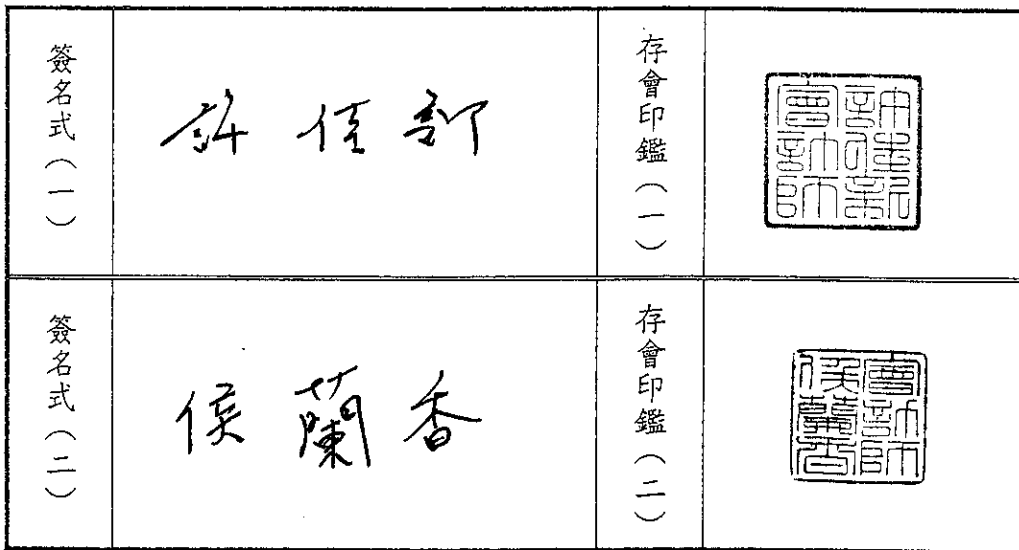 簽名式(一)
許佳
存會印鑑(一)
會計師
簽名式(二)
侯蘭香
存會印鑑(二)
會計師
侯蘭香